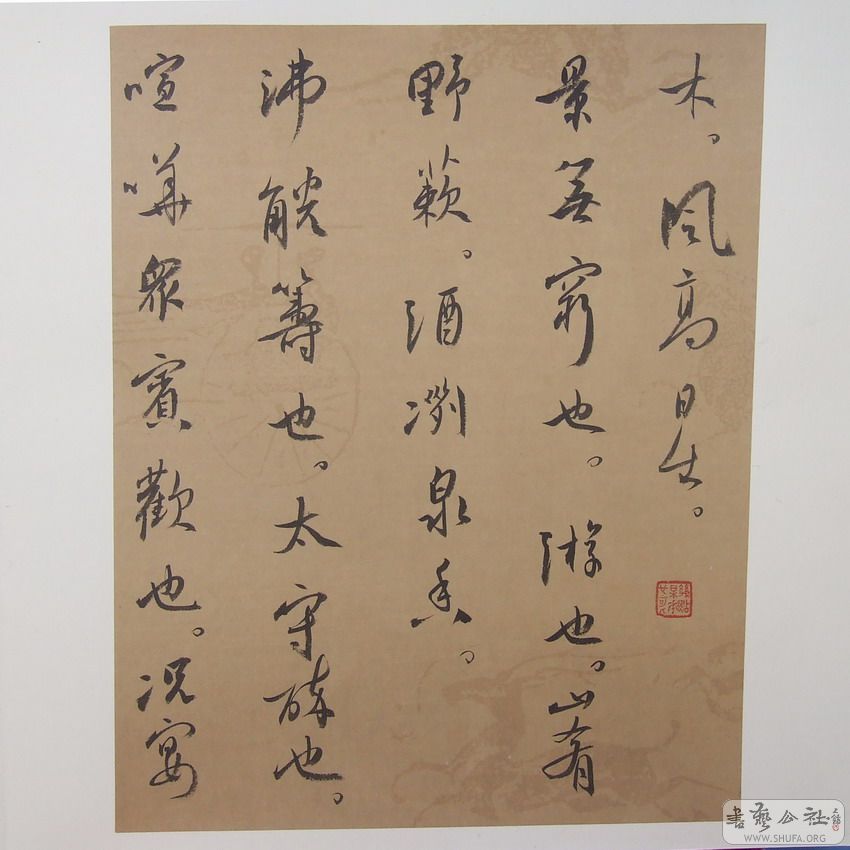 木。风高日生。
景無穷也。游也。山肴
野蔌。酒洌泉香。
沸觥籌也。太守醉也。
喧嘩衆賓歡也。况宴
書藝公社
WWW.SHUFA.ORG